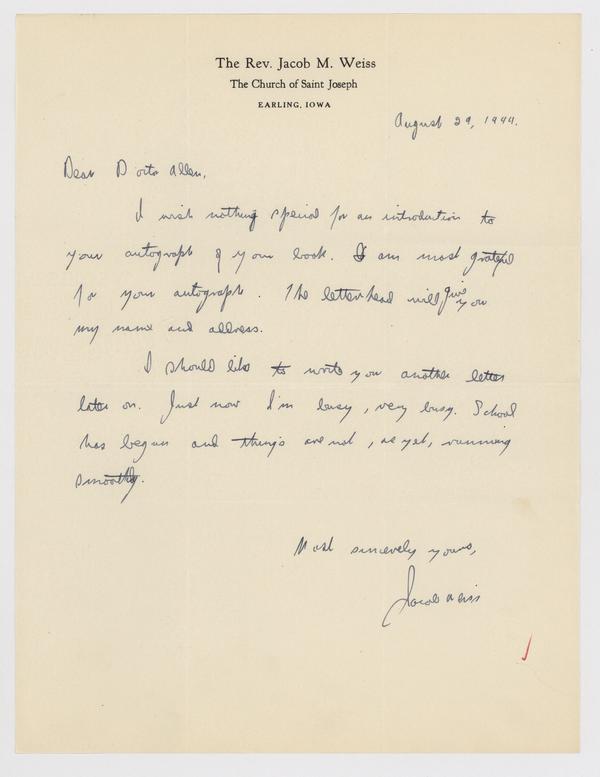 The Rev. Jacob M. Weiss
The Church of Saint Joseph
EARLING, IOWA
August 29, 1944.
Dear Doctor Allen,
I wish nothing special for an introduction to
your autograph of your book. I am most grateful
for your autograph. The letterhead will give you
my name and address.
I should like to write you another letter
later on. Just now I'm busy, very busy. School
has begun and things are not, as yet, running
smoothly.
Most sincerely yours,
Jacob Weiss